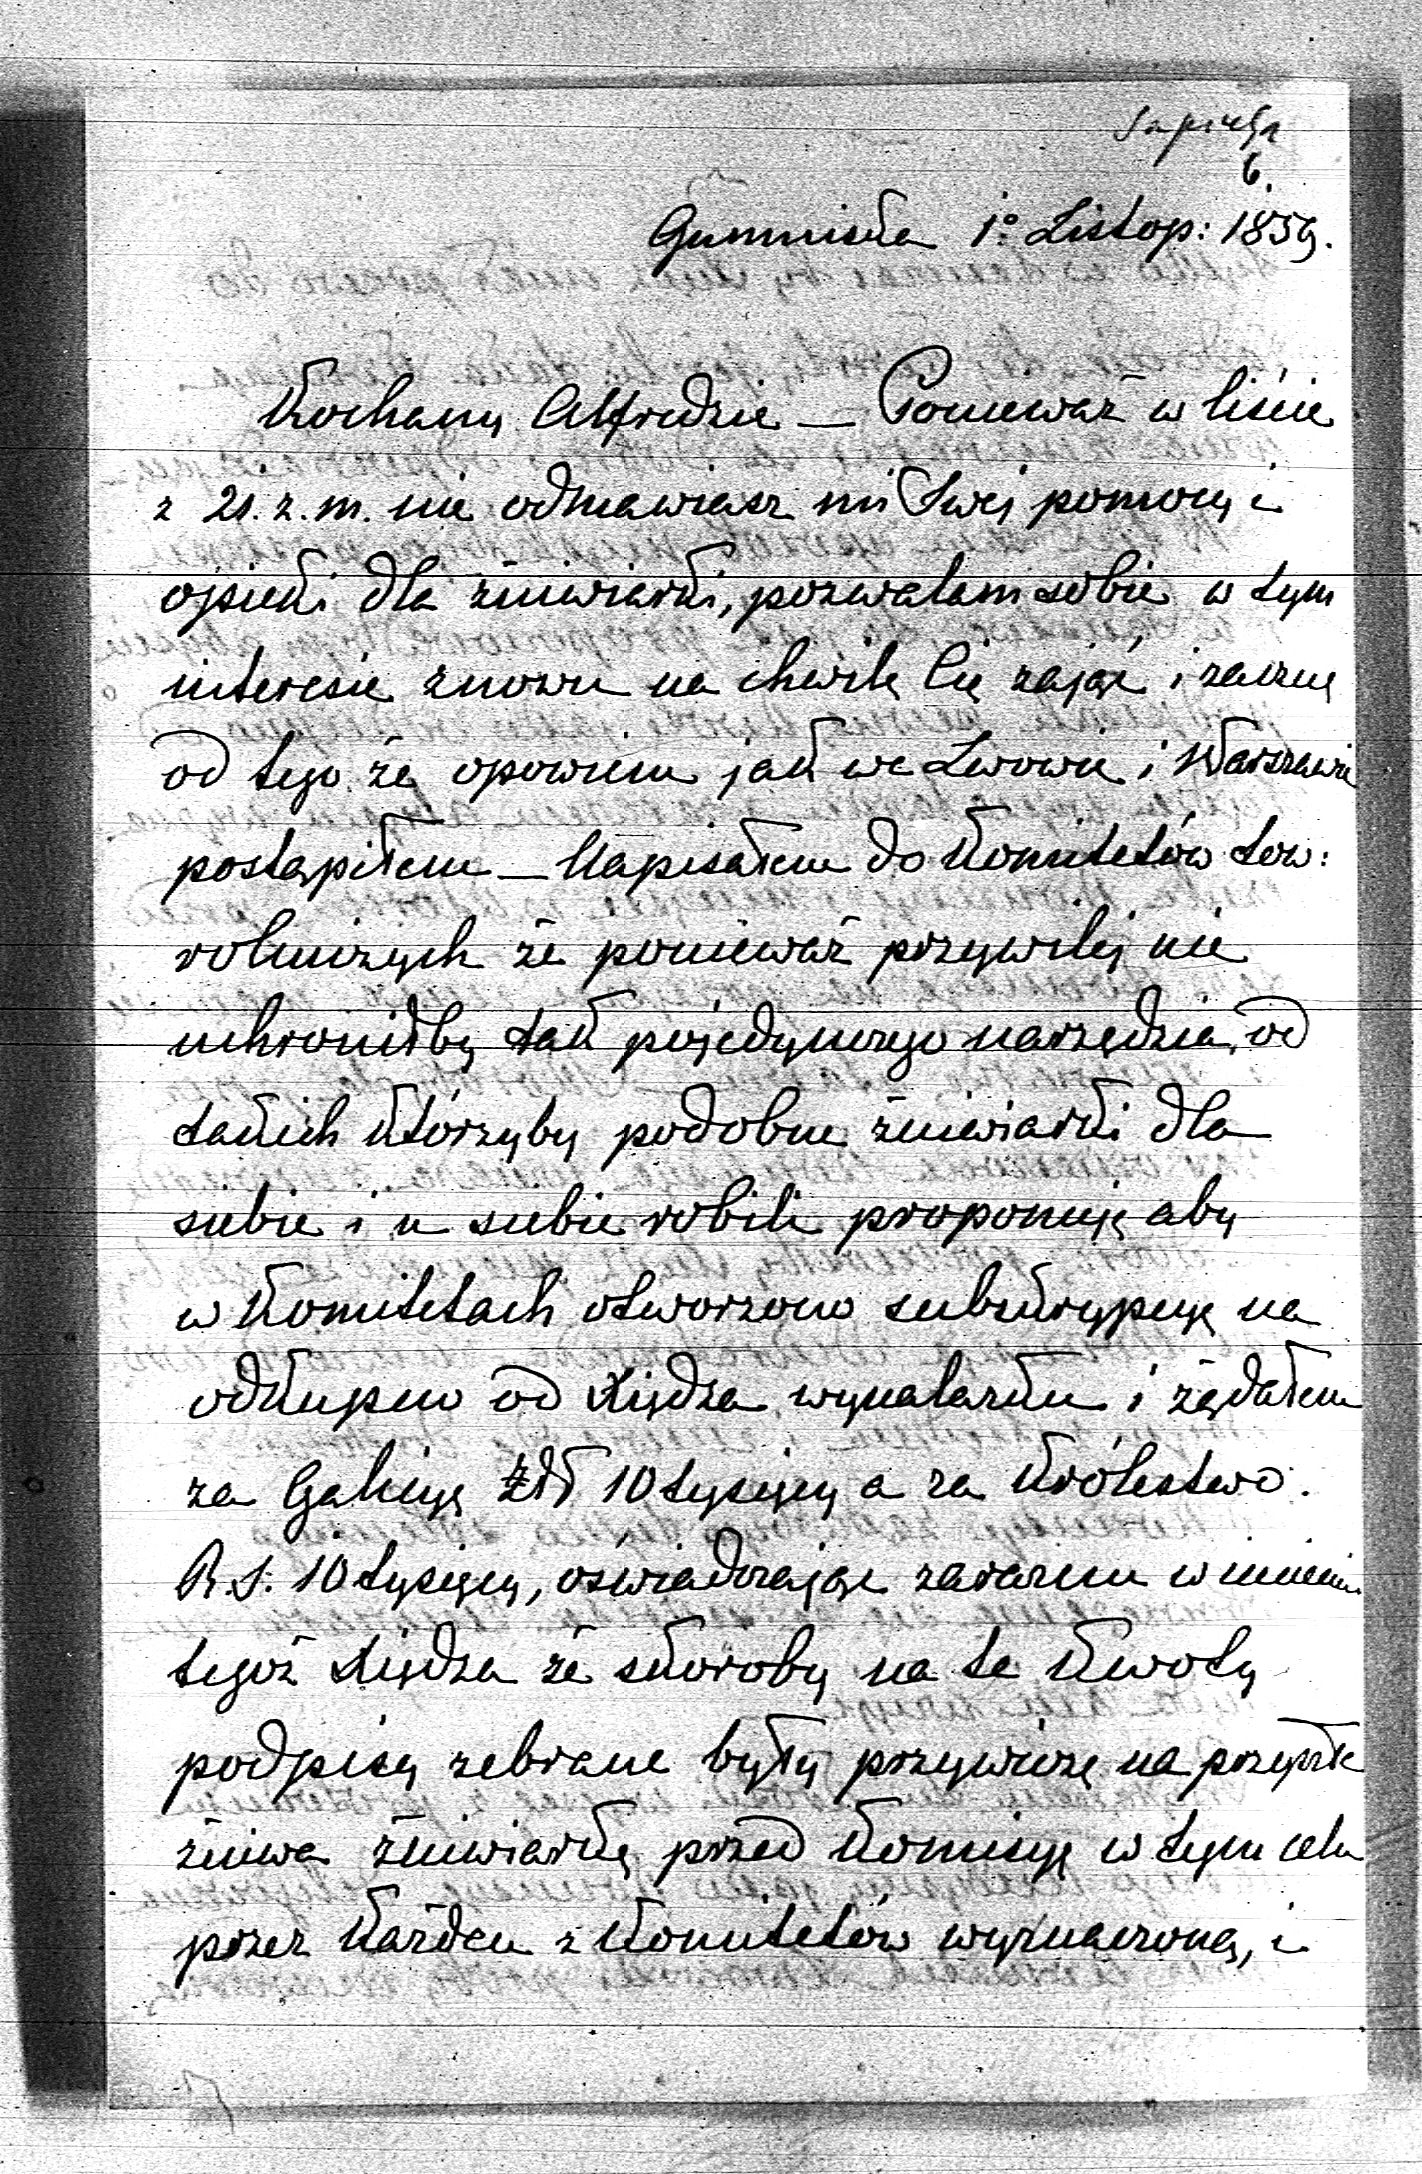 Sapieha
6.
Gumniska 1º Listop: 1859.
Kochany Alfredzie — Ponieważ w liście
z 21. z. m. nie odmawiasz mi Swej pomocy i
opieki dla żniwiarki, pozwalam sobie w tym
interesie znowu na chwilę Cię zająć i zacznę
od tego że opowiem jak we Lwowie i Warszawie
postąpiłem — Napisałem do Komitetów tow:
rolniczych że ponieważ przywilej nie
uchroniłby tak pojedynczego narzędzia, od
takich którzyby podobne żniwiarki dla
siebie i u siebie robili proponuję aby
w Komitetach otworzono subskrypcyę na
odkupno od Xiędza wynalazku i żądałem
za Galicyę Złr 10 tysięcy a za Królestwo.
R. S. 10 tysięcy, oświadczając zarazem w imieniu
tegoż Xiędza że skoroby na te kwoty
podpisy zebrane były przywiozę na przyszłe
żniwa żniwiarkę przed Komisyę w tym celu
przez każden z Komitetów wyznaczoną, i